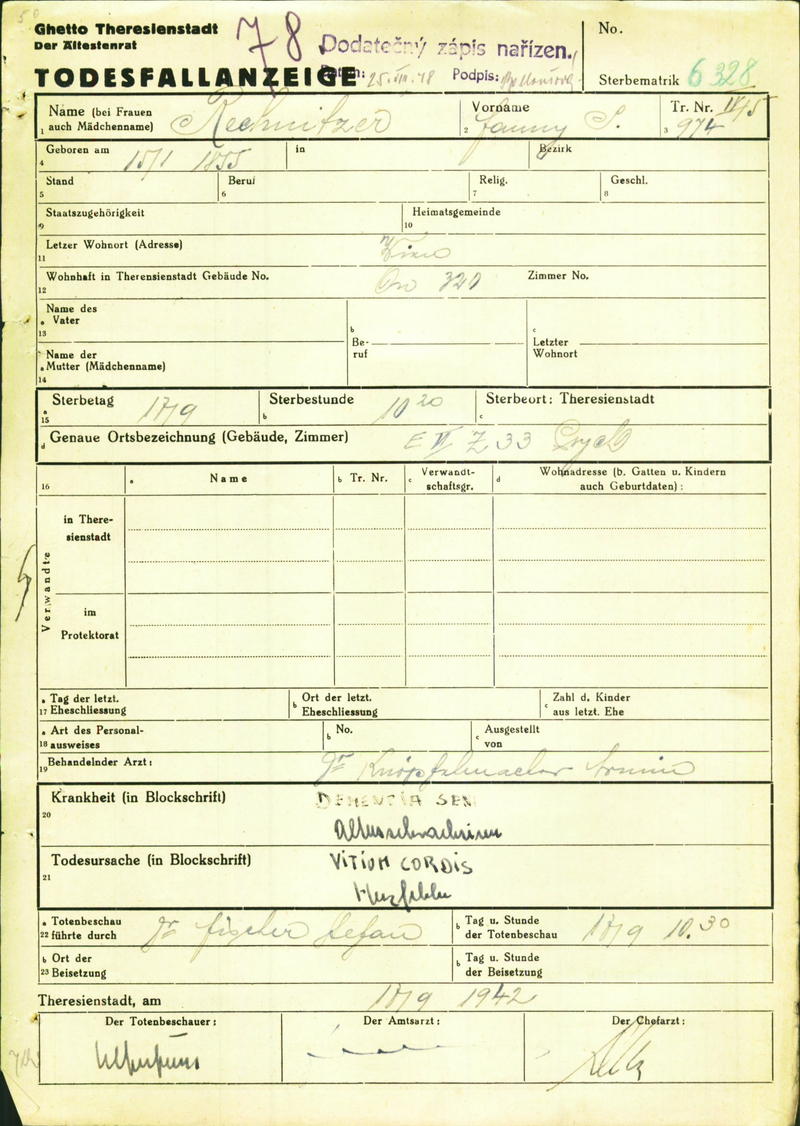 Ghetto Theresienstadt
Der Ältestenrat
TODESFALLANZEIGE
78
Dodatečný zápis nařízen.
25. VIII. 48 Podpis:
No.
Sterbematrik 6328
Name (bei Frauen
1 auch Mädchenname) Rechnitzer
Vorname
2 Fanny S.
Tr. Nr. IV/5
3 974
Geboren am 15/1 1855 in Bezirk
4
Stand Beruf Relig. Geschl.
5 6 7 8
Staatszugehörigkeit Heimatsgemeinde
9 10
Letzer Wohnort (Adresse) Wien
11
Wohnhaft in Theresienstadt Gebäude No. 320 Zimmer No.
12
Name des
a Vater
13
b
Be-
ruf
c
Letzter
Wohnort
Name der
a Mutter (Mädchenname)
14
Sterbetag 17/9 Sterbestunde 10 20 Sterbeort: Theresienstadt
a 15 b c
d Genaue Ortsbezeichnung (Gebäude, Zimmer) E VI Z 33
16 a Name b Tr. Nr. c Verwandt-
schaftsgr. d Wohnadresse (b. Gatten u. Kindern
auch Geburtdaten):
Verwandte
in There-
sienstadt
im
Protektorat
a Tag der letzt.
17 Eheschliessung
b Ort der letzt.
Eheschliessung
c Zahl d. Kinder
aus letzt. Ehe
a Art des Personal-
18 ausweises
b No.
c Ausgestellt
von
Behandelnder Arzt: Dr Knöpfelmacher Armin
19
Krankheit (in Blockschrift) DEMENTIA SEN
20
Altersschwachsinn
Todesursache (in Blockschrift) VITIUM CORDIS
21
Herzfehler
a Totenbeschau
22 führte durch Dr Fischer Stefan
b Tag u. Stunde
der Totenbeschau 17/9 10.30
a Ort der
23 Beisetzung
b Tag u. Stunde
der Beisetzung
Theresienstadt, am 17/9 1942
Der Totenbeschauer: Der Amtsarzt: Der Chefarzt: